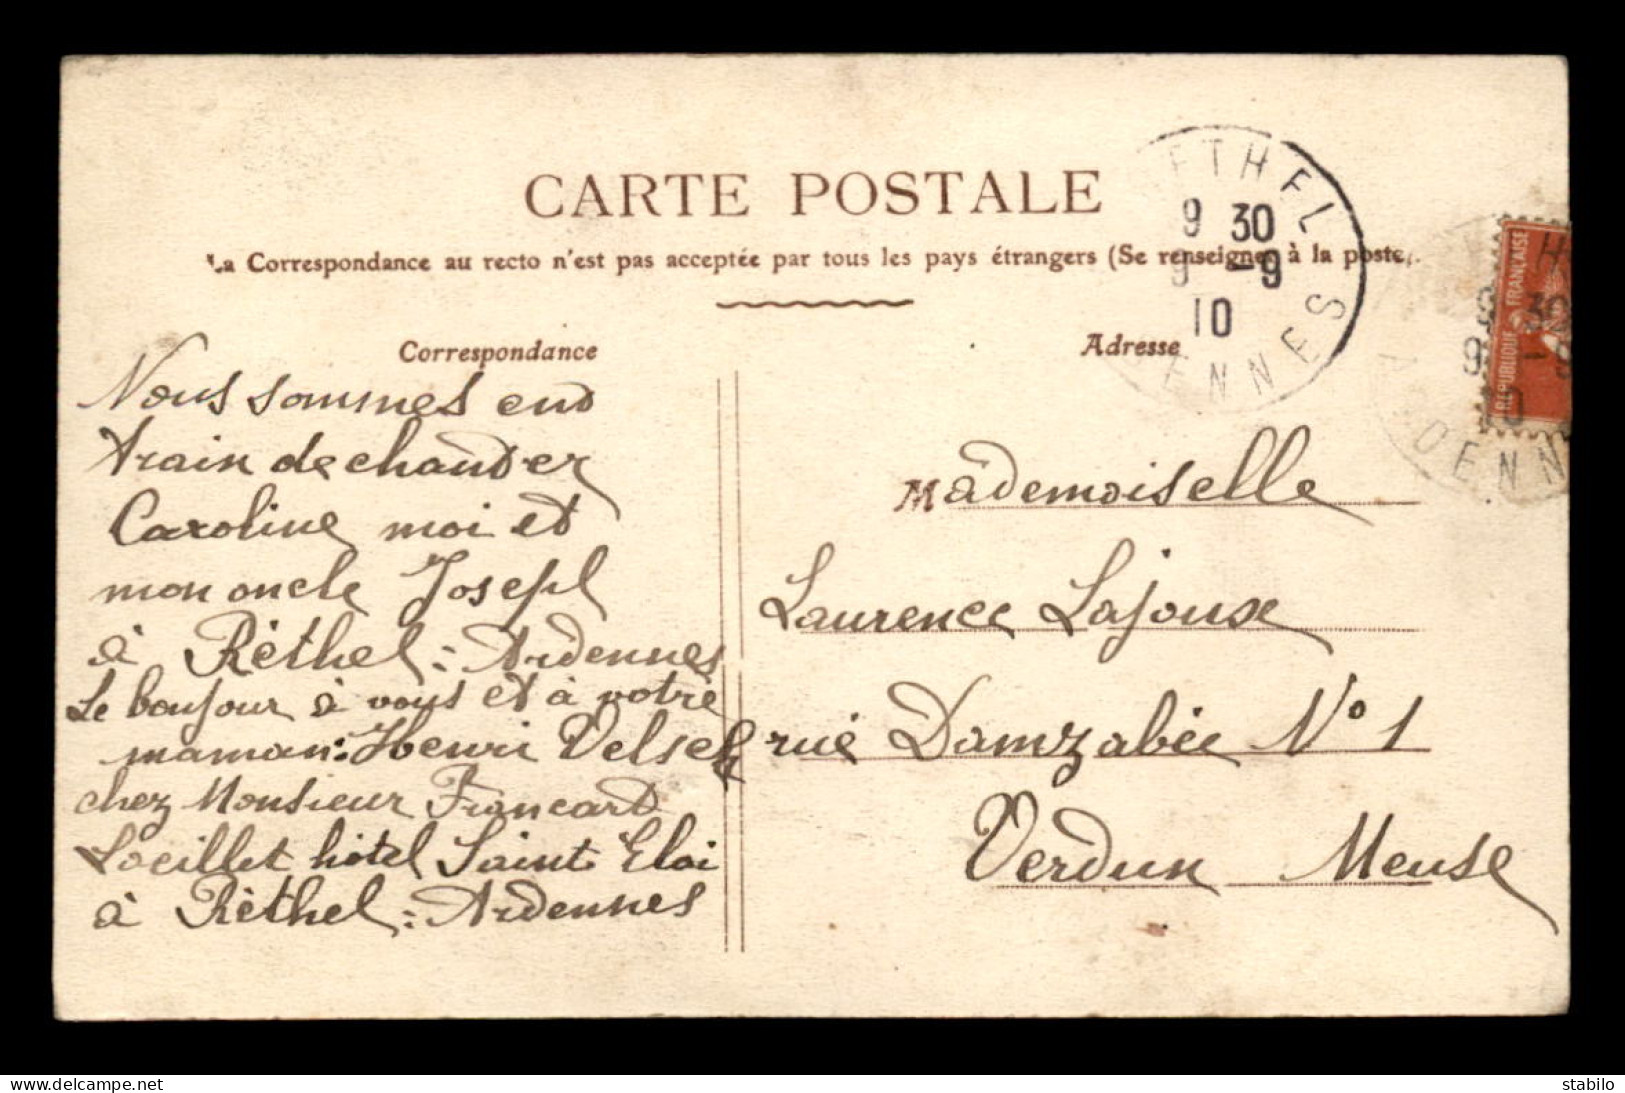 CARTE POSTALE
La Correspondance au recto n'est pas acceptée par tous les pays étrangers (Se renseigner à la poste).
Correspondance
Nous sommes end
train de chanter
Caroline moi et
mon oncle Joseph
à Réthel : Ardennes
Le bonjour à vous et à votre
maman : Henri
chez Monsieur Francart
hôtel Saint Eloi
à Réthel : Ardennes
Adresse
Mademoiselle
Laurence Lajouse
rue Damzabée N° 1
Verdun Meuse
RETHEL
9 30
9 -9
10
ARDENNES
REPUBLIQUE FRANÇAISE
9 30
9 -9
10
ARDENN
delcampe.net
stabilo